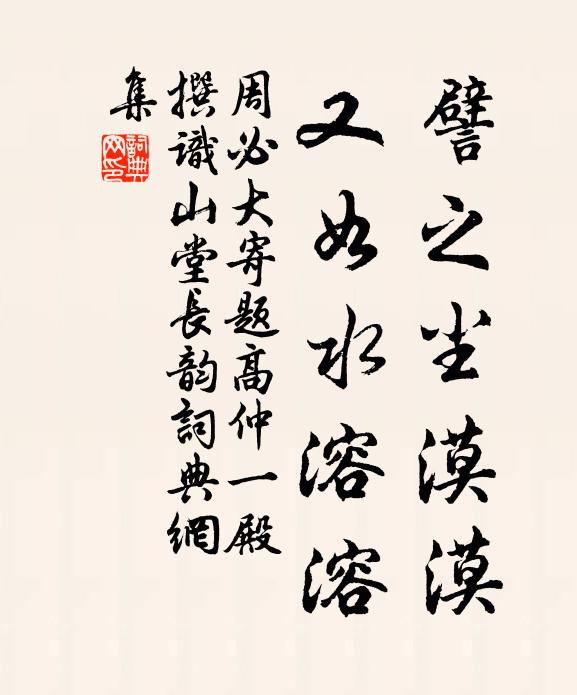 譬之尘漠漠
又如水溶溶
周必大寄题高仲一殿
撰識山堂長韵詞典網
集
詞典網印